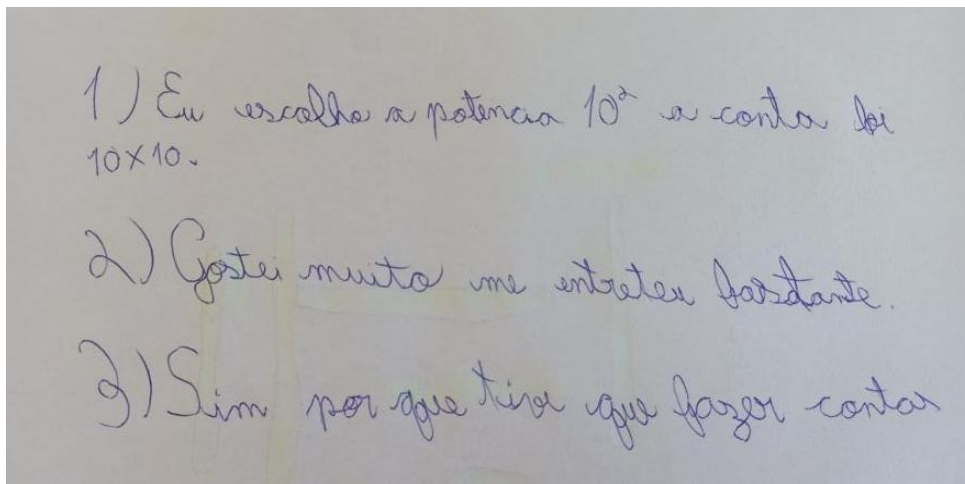 1) Eu escolho a potencia 10² a conta foi
10×10.
2) Gostei muito me entreteu bastante.
3) Sim por que tive que fazer contas